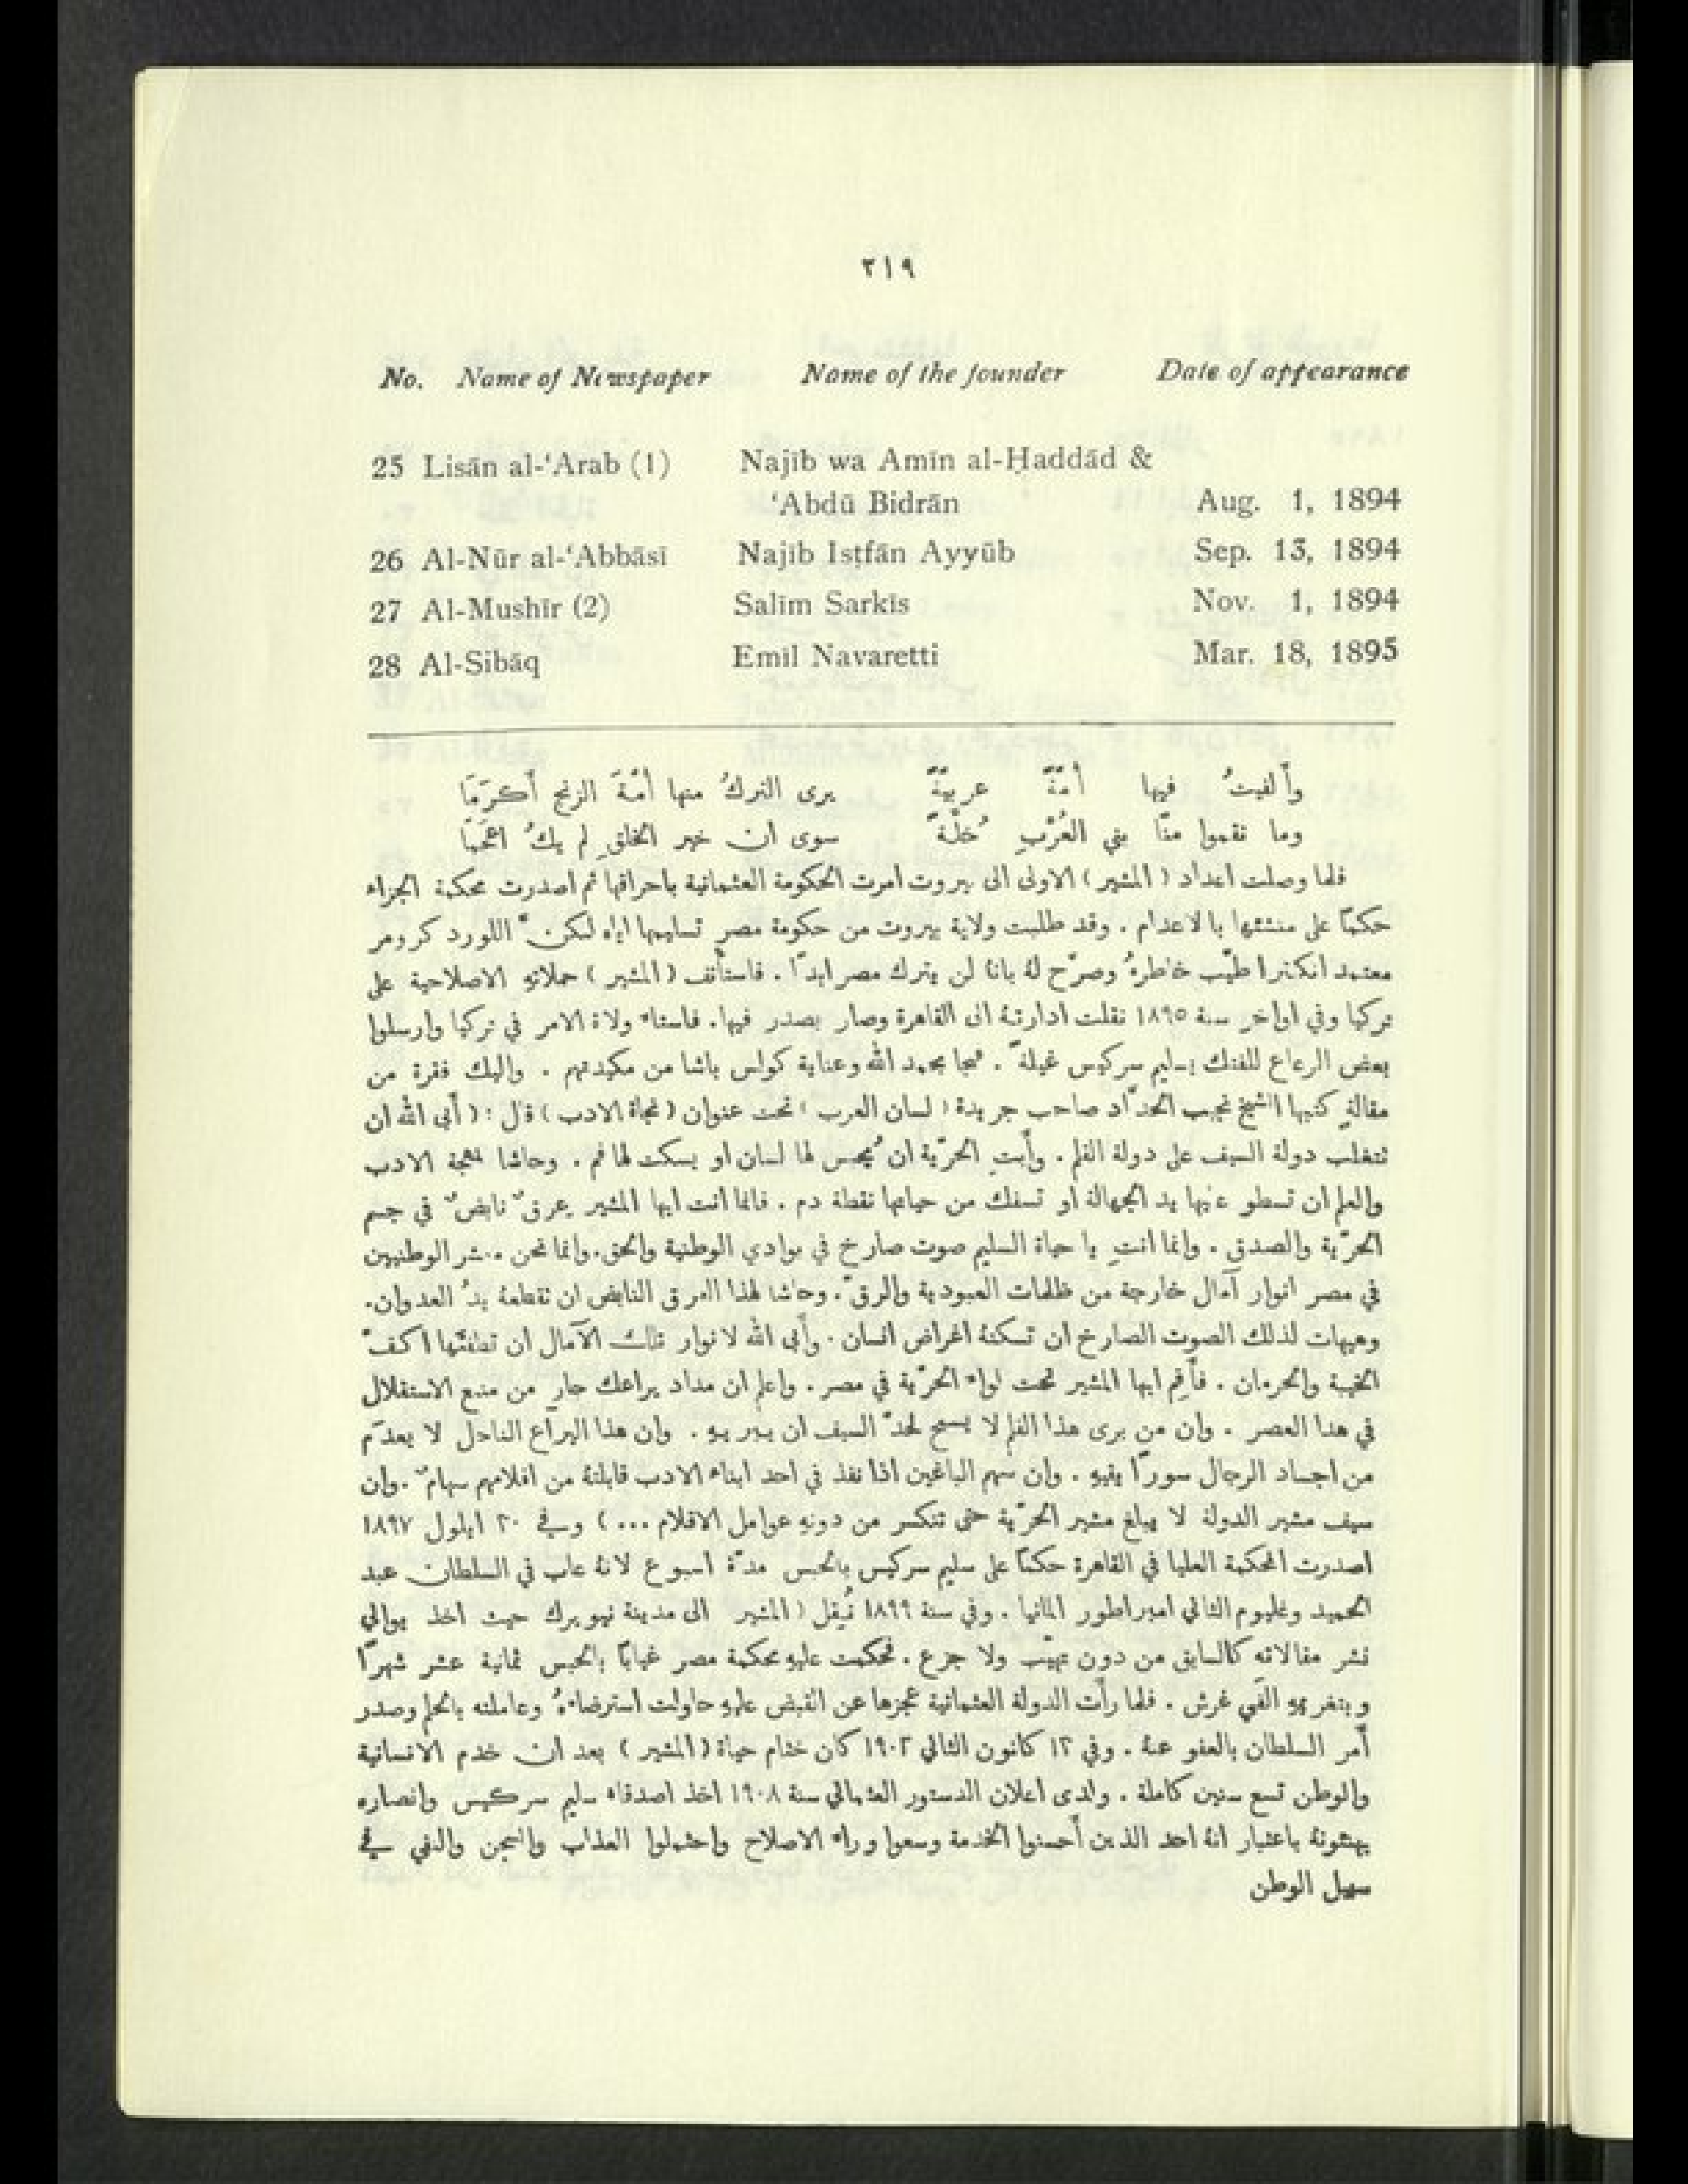 ٢١٩
No. Name of Newspaper Name of the founder Date of appearance
25 Lisān al-‘Arab (1) Najīb wa Amīn al-Ḥaddād &
‘Abdū Bidrān Aug. 1, 1894
26 Al-Nūr al-‘Abbāsī Najīb Isṭfān Ayyūb Sep. 13, 1894
27 Al-Mushīr (2) Salīm Sarkīs Nov. 1, 1894
28 Al-Sibāq Emīl Navaretti Mar. 18, 1895
وأَلفيتُ فيها أُمَّةً عربيَّةً يرى التركُ منها أمّةَ الزنج أَكرَمَا
وما نقموا منّا بني العُرْبِ خُلّةً سوى ان خير الخلقِ لم يكُ اعجَمَا
فلما وصلت اعداد (المشير) الاولى الى بيروت امرت الحكومة العثمانية باحراقها ثم اصدرت محكمة الجزاء
حكمًا على منشئها بالاعدام . وقد طلبت ولاية بيروت من حكومة مصر تسليمها اياه لكنّ اللورد كرومر
معتمد انكلترا طيّب خاطرهُ وصرّح لهُ بانهُ لن يترك مصر ابدًا . فاستأنف (المشير) حملاتهِ الاصلاحية على
تركيا وفي اواخر سنة ١٨٩٥ نقلت ادارتهُ الى القاهرة وصار يصدر فيها. فاستاء ولاة الامر في تركيا وارسلوا
بعض الرعاع للفتك بسليم سركيس غيلةً . فنجا بحمد الله وعناية كولس باشا من مكيدتهم . واليك فقرة من
مقالةٍ كتبها الشيخ نجيب الحدّاد صاحب جريدة (لسان العرب) تحت عنوان (نجاة الادب) قال : (أَبى الله ان
تتغلب دولة السيف على دولة القلم . وأَبتِ الحرّية ان يُحبس لها لسان او يسكت لها فم . وحاشا لمهجة الادب
والعلم ان تسطو عليها يد الجهالة او تسفك من حياتها نقطة دم . فانما انت ايها المشير عرقٌ نابضٌ في جسم
الحرّية والصدق . وانما انتِ يا حياة السليم صوت صارخ في بوادي الوطنية والحق. وانما نحن معشر الوطنيين
في مصر انوار آمال خارجة من ظلمات العبودية والرقّ. وحاشا لهذا العرق النابض ان تقطعهُ يدُ العدوان.
وهيهات لذلك الصوت الصارخ ان تسكتهُ اغراض انسان . وأَبى الله لانوار تلك الآمال ان تطفئها اكفّ
الخيبة والحرمان . فأَقِم ايها المشير تحت لواء الحرّية في مصر . واعلم ان مداد يراعك جارٍ من منبع الاستقلال
في هذا العصر . وان من برى هذا القلم لا يسمح لحدّ السيف ان يبريهِ . وان هذا اليراع الناحل لا يعدَم
من اجساد الرجال سورًا يقيهِ . وان سهم الباغين اذا نفذ في احد ابناء الادب قابلتهُ من اقلامهم سهامٌ .وان
سيف مشير الدولة لا يبلغ مشير الحرّية حتى تنكسر من دونهِ عوامل الاقلام ...) وفي ٢٠ ايلول ١٨٩٧
اصدرت المحكمة العليا في القاهرة حكمًا على سليم سركيس بالحبس مدّة اسبوع لانهُ عاب في السلطان عبد
الحميد وغليوم الثاني امبراطور المانيا . وفي سنة ١٨٩٩ نُقِل (المشير الى مدينة نيويرك حيث اخذ يوالي
نشر مقالاتهِ كالسابق من دون تهيّب ولا جزع . فحكمت عليهِ محكمة مصر غيابًا بالحبس ثمانية عشر شهرًا
وبتغريمهِ الفَي غرش . فلما رأَت الدولة العثمانية عجزها عن القبض عليهِ حاولت استرضاءهُ وعاملته بالحلم وصدر
أَمر السلطان بالعفو عنهُ . وفي ١٢ كانون الثاني ١٩٠٢ كان ختام حياة (المشير) بعد ان خدم الانسانية
والوطن تسع سنين كاملة . ولدى اعلان الدستور العثماني سنة ١٩٠٨ اخذ اصدقاء سليم سركيس وانصاره
يهنئونهُ باعتبار انهُ احد الذين أَحسنوا الخدمة وسعوا وراء الاصلاح واحتملوا العذاب والسجن والنفي في
سبيل الوطن